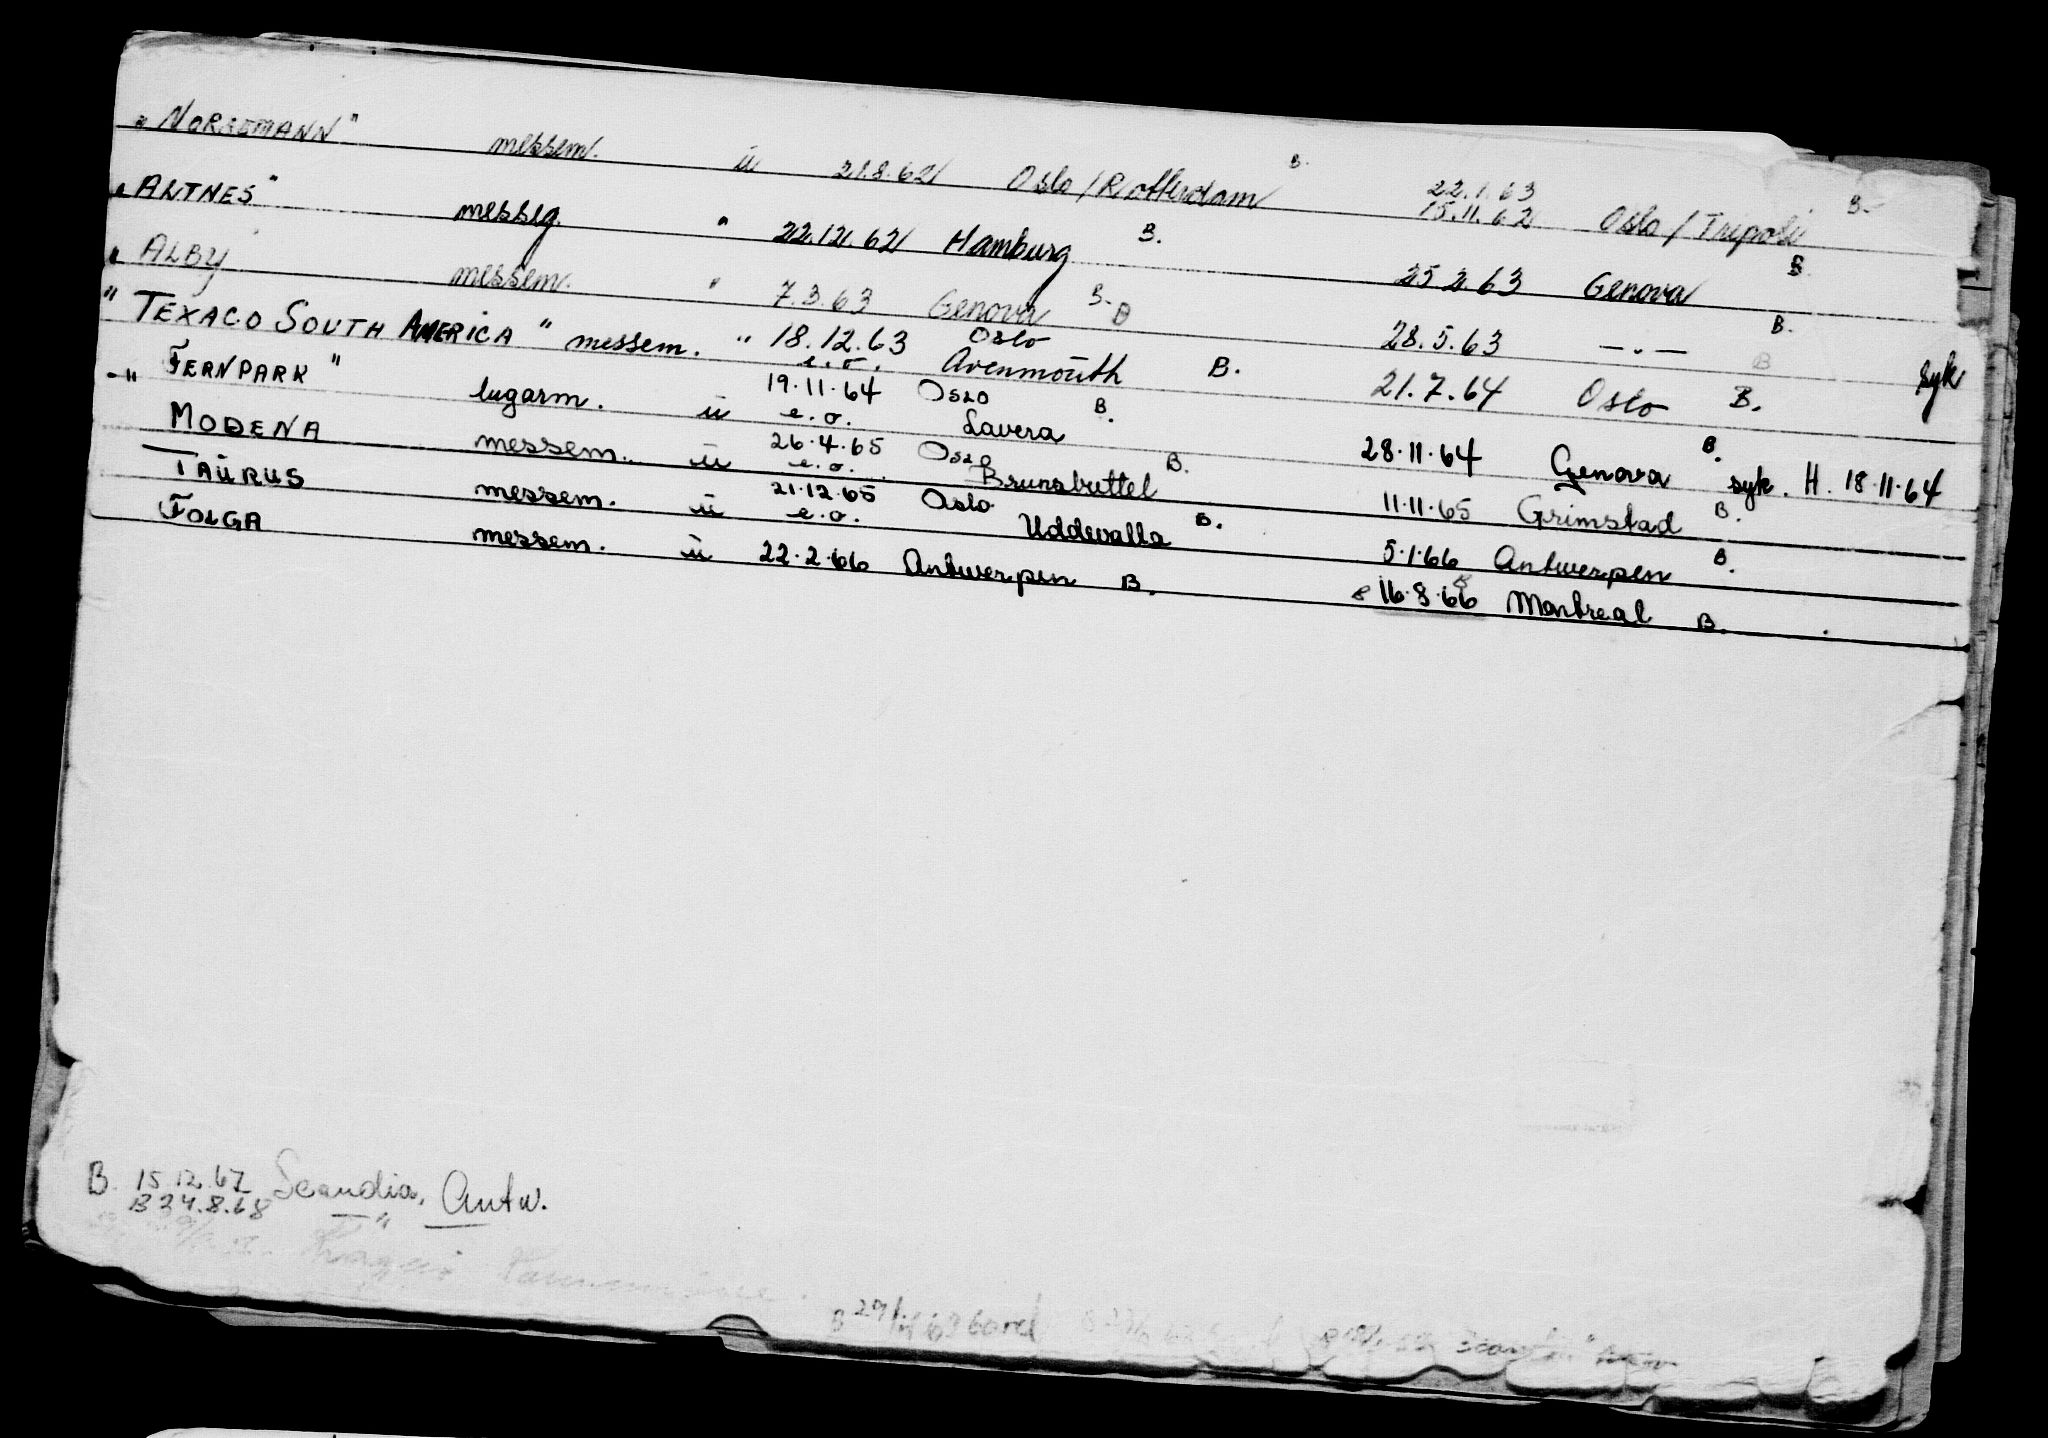 "NORSEMANN" messem. u 21.8.62 Oslo/Rotterdam B. 22.1.63
15.11.62 Oslo/Tripoli B.
"ALTNES" messeg. " 22.12.62 Hamburg B. 25.2.63 Genova B.
" ALBY messem. " 7.3.63 Genova B. B 28.5.63 —.— B.
" TEXACO SOUTH AMERICA " messem. " 18.12.63 Oslo
e.o. Avenmouth B. 21.7.64 Oslo B. syk
-" FERNPARK " lugarm. u 19.11.64 Oslo
e.o. Lavera B. 28.11.64 Genova B. syk. H. 18.11.64
MODENA messem. u 26.4.65 Oslo
e.o. Brunsbuttel B. 11.11.65 Grimstad B.
TAURUS messem. u 21.12.65 Oslo
e.o. Uddevalla B. 5.1.66 Antwerpen B.
FOLGA messem. u 22.2.66 Antwerpen B. 16.8.66 Montreal B.
B. 15.12.67 Scandia, Antw.
B 24.8.68 — " —